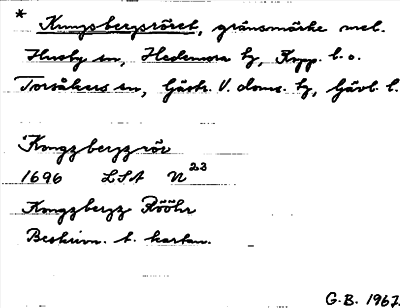 * Kungsbergsröret, gränsmärke mel.
Husby sn, Hedemora tg, Kopp. l. o.
Torsåkers sn, Gästr. V. doms. tg, Gävl. l.
Kongzbergz rör
1696 LSA N 23
Kongzbergz Rööhr
Beskrivn. t. kartan.
G.B. 1967.